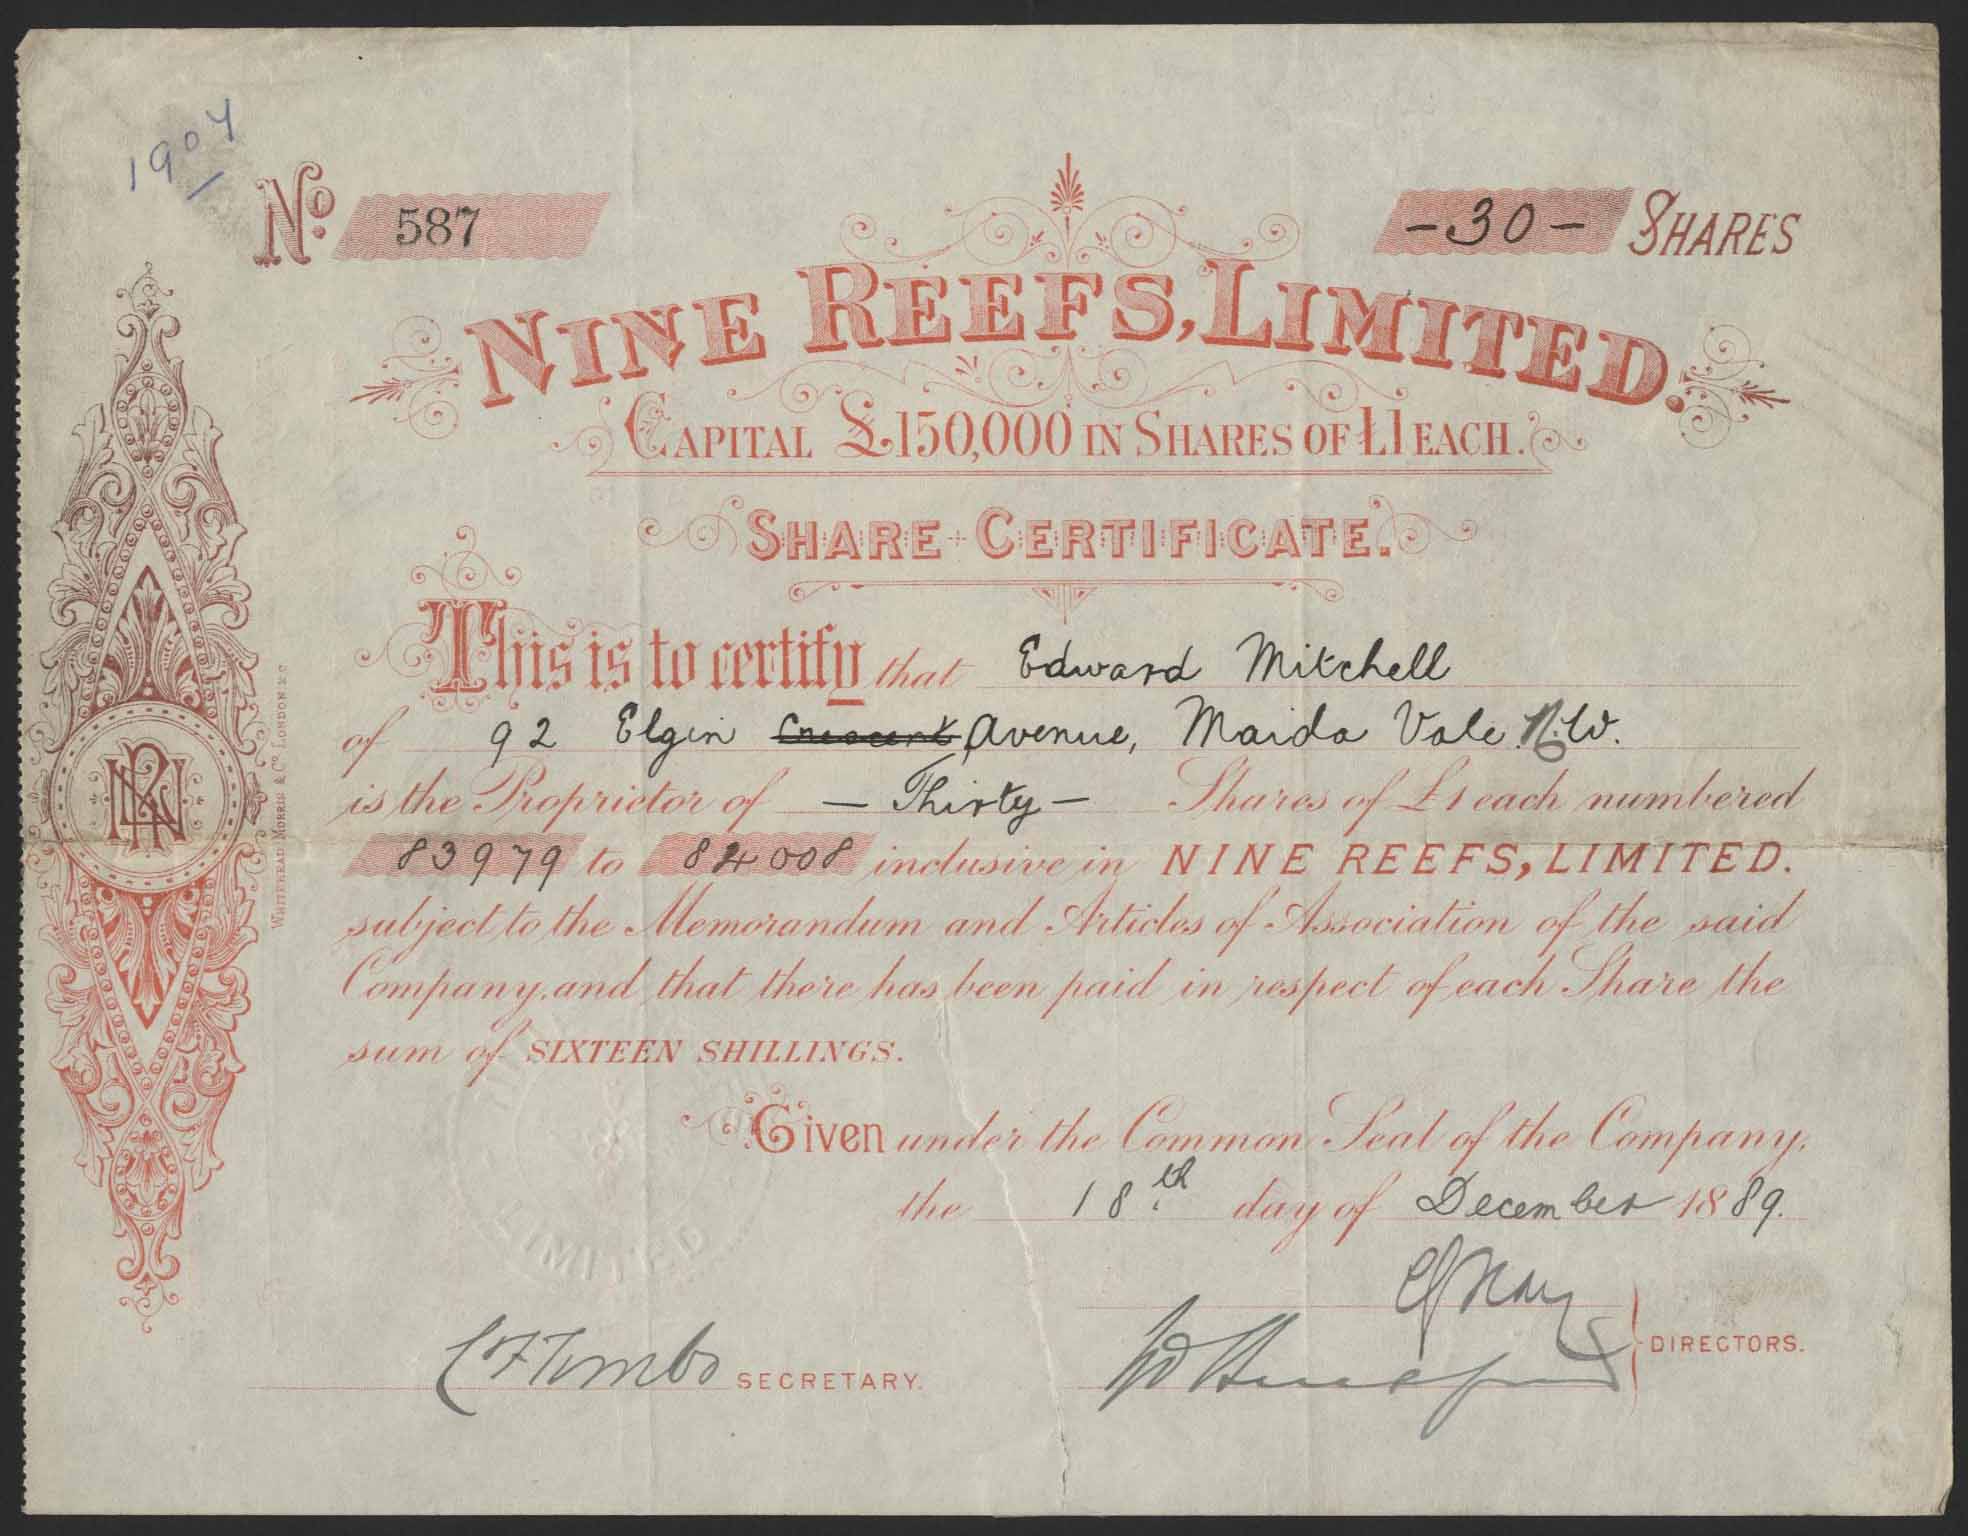 1904
No. 587
-30- SHARES
NINE REEFS, LIMITED.
CAPITAL £150,000 IN SHARES OF £1 EACH.
SHARE CERTIFICATE.
This is to certify that Edward Mitchell
of 92 Elgin Crescent Avenue, Maida Vale N.W.
is the Proprietor of – Thirty – Shares of £1 each numbered
83979 to 84008 inclusive in NINE REEFS, LIMITED.
subject to the Memorandum and Articles of Association of the said
Company, and that there has been paid in respect of each Share the
sum of SIXTEEN SHILLINGS.
Given under the Common Seal of the Company,
the 18th day of December 1889.
DIRECTORS.
SECRETARY.
WHITEHEAD MORRIS & Co. LONDON E C
LIMITED